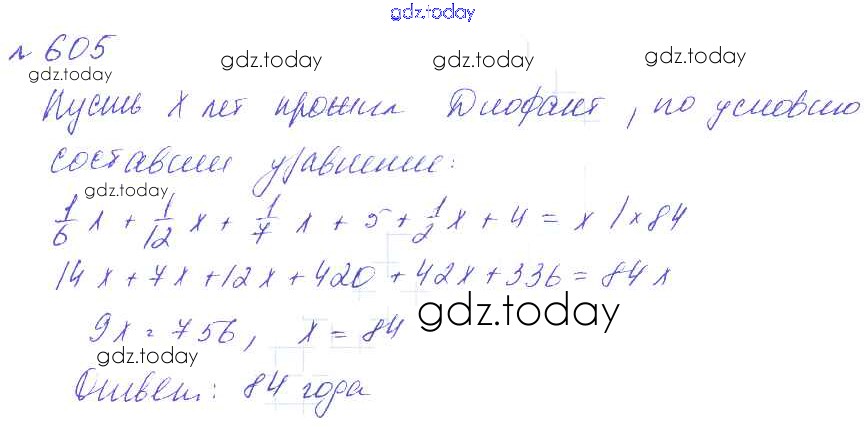 gdz.today
№ 605
gdz.today gdz.today gdz.today gdz.today
Пусть x лет прожил Диофант, по условию
составим уравнение:
gdz.today
1/6 x + 1/12 x + 1/7 x + 5 + 1/2 x + 4 = x | × 84
14x + 7x + 12x + 420 + 42x + 336 = 84x
9x = 756, x = 84
gdz.today
gdz.today
Ответ: 84 года